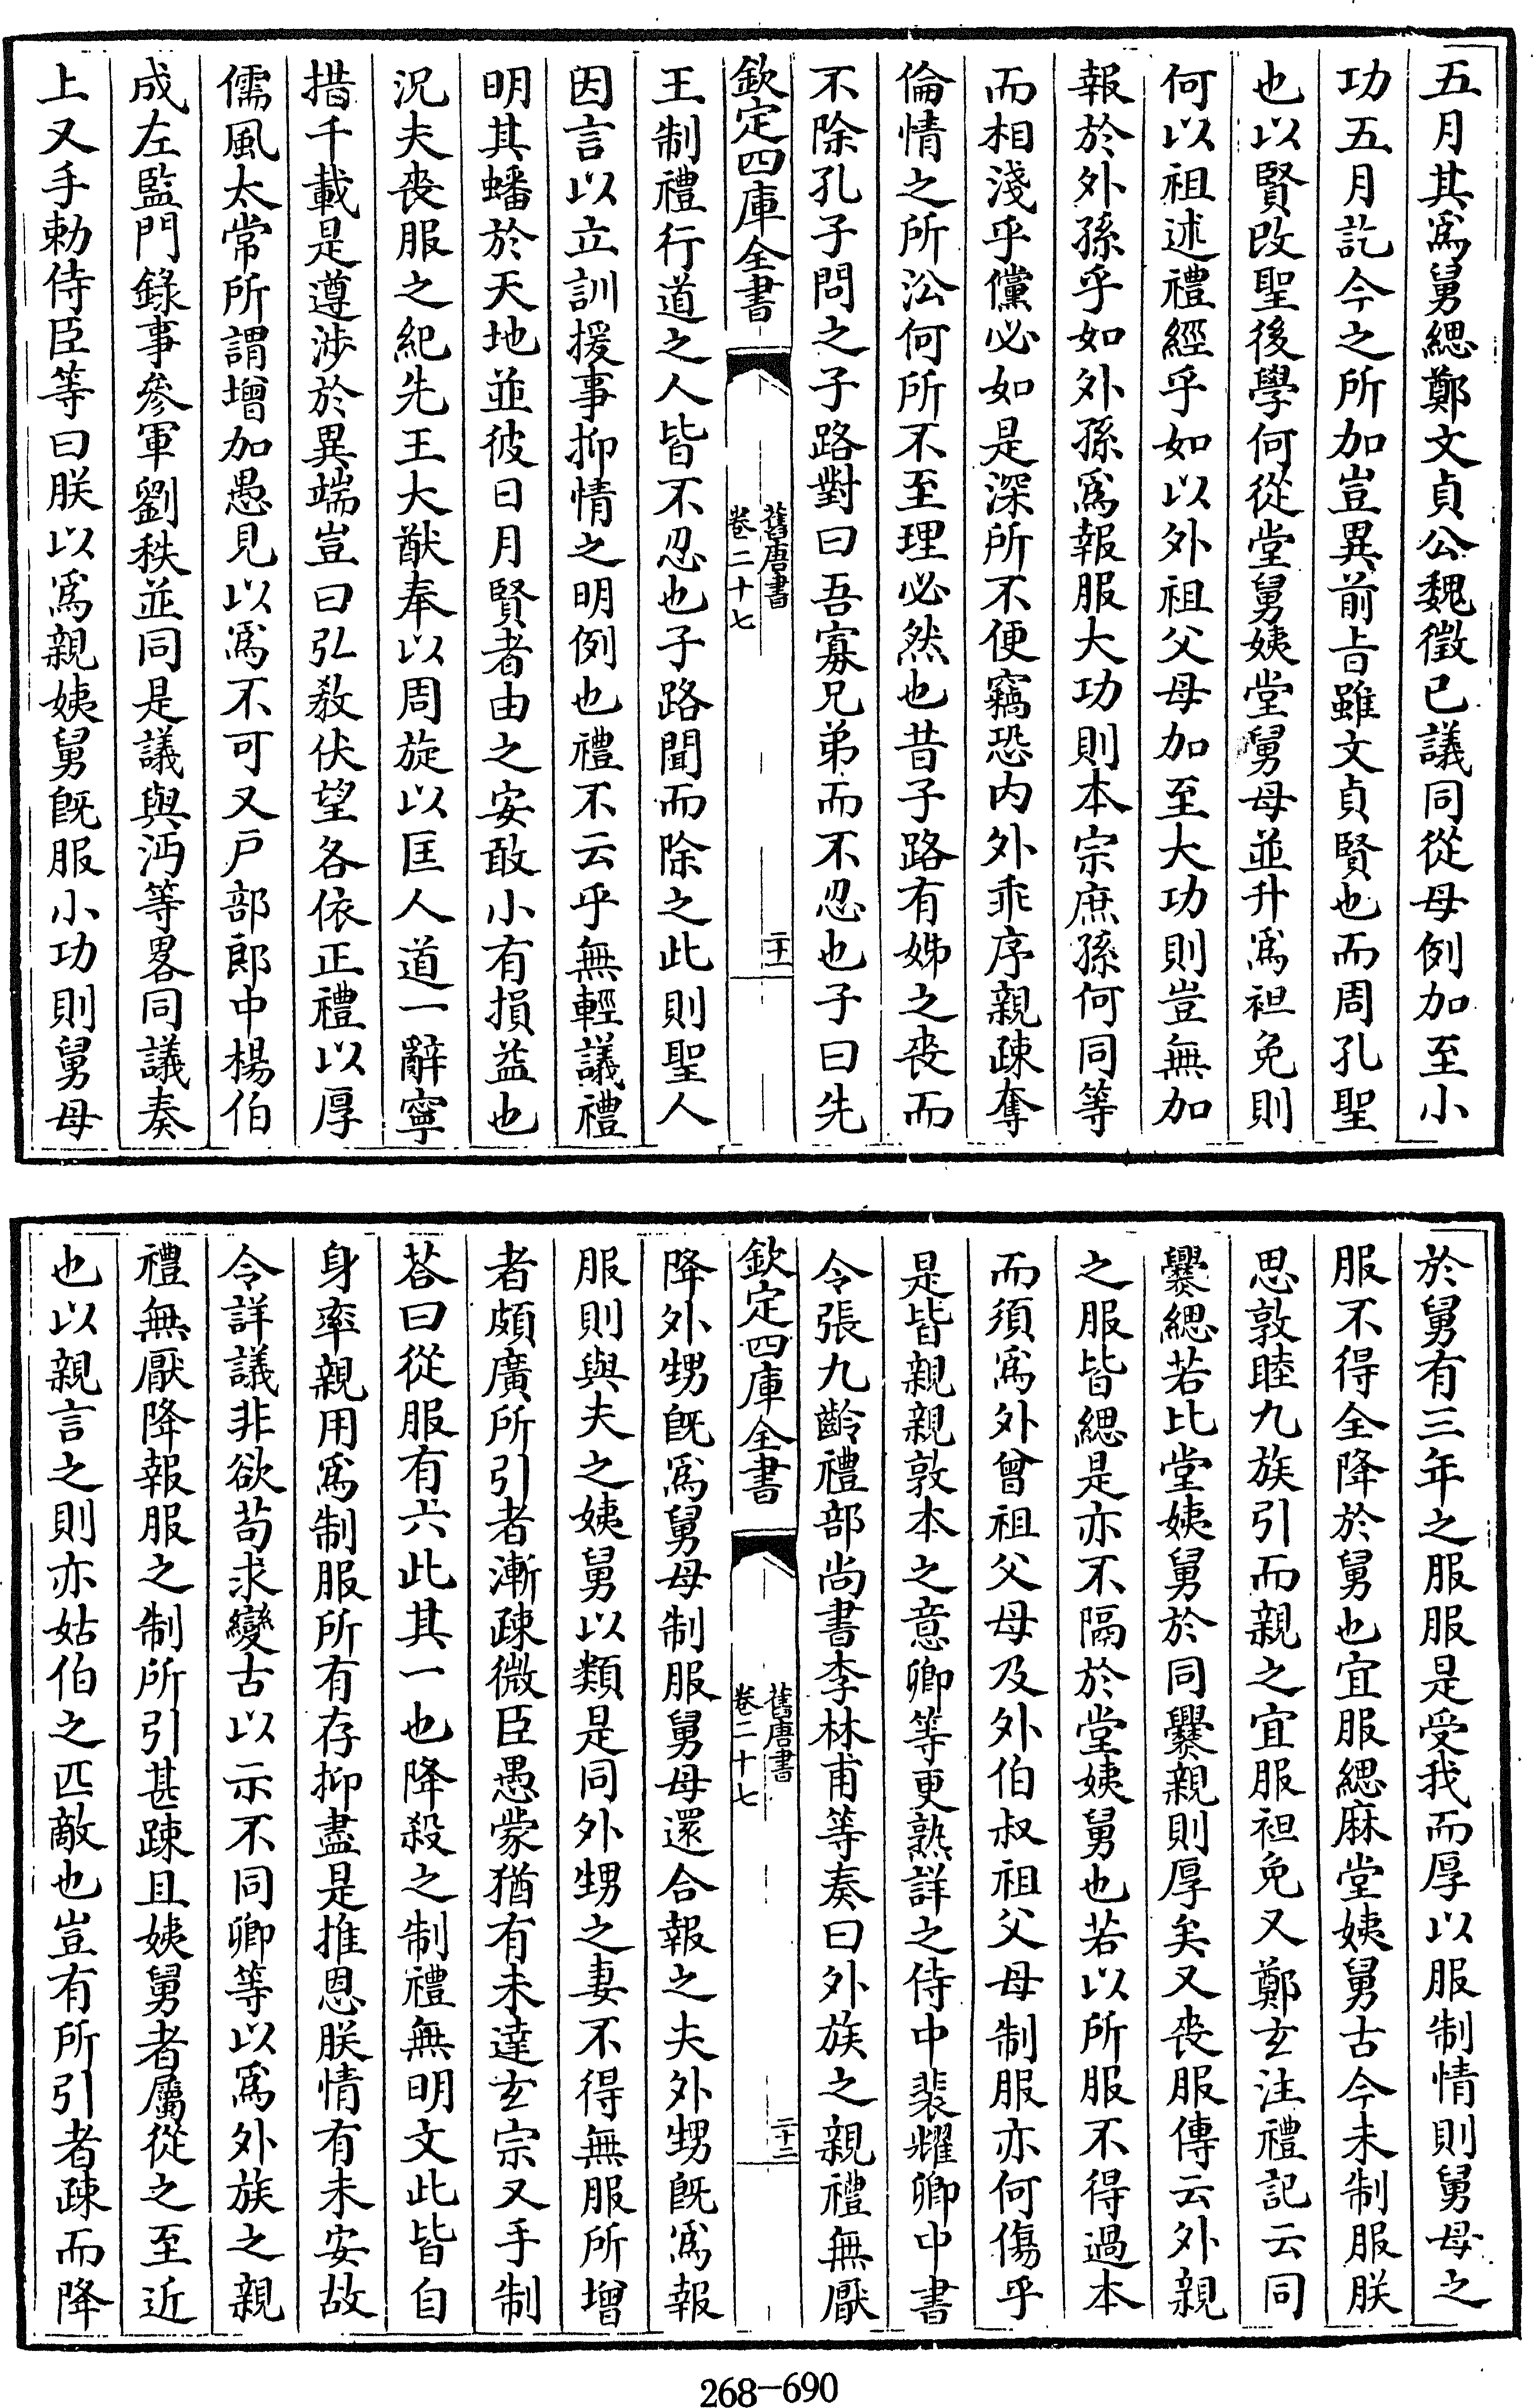 五月其爲舅緦鄭文貞公魏徵已議同從母例加至小
功五月訖今之所加豈異前旨雖文貞賢也而周孔聖
也以賢改聖後學何從堂舅姨堂舅母並升爲袒免則
何以祖述禮經乎如以外祖父母加至大功則豈無加
報於外孫乎如外孫爲報服大功則本宗庶孫何同等
而相淺乎儻必如是深所不便竊恐内外乖序親疎奪
倫情之所沿何所不至理必然也昔子路有姊之喪而
不除孔子問之子路對曰吾寡兄弟而不忍也子曰先
欽定四庫全書
舊唐書
卷二十七
二十一
王制禮行道之人皆不忍也子路聞而除之此則聖人
因言以立訓援事抑情之明例也禮不云乎無輕議禮
明其蟠於天地並彼日月賢者由之安敢小有損益也
況夫喪服之紀先王大猷奉以周旋以匡人道一辭寧
措千載是遵涉於異端豈曰弘教伏望各依正禮以厚
儒風太常所謂增加愚見以爲不可又戸部郎中楊伯
成左監門錄事參軍劉秩並同是議與沔等畧同議奏
上又手勅侍臣等曰朕以爲親姨舅旣服小功則舅母
於舅有三年之服服是受我而厚以服制情則舅母之
服不得全降於舅也宜服緦麻堂姨舅古今未制服朕
思敦睦九族引而親之宜服袒免又鄭玄注禮記云同
爨緦若比堂姨舅於同爨親則厚矣又喪服傳云外親
之服皆緦是亦不隔於堂姨舅也若以所服不得過本
而須爲外曾祖父母及外伯叔祖父母制服亦何傷乎
是皆親親敦本之意卿等更熟詳之侍中裴耀卿中書
令張九齡禮部尚書李林甫等奏曰外族之親禮無厭
欽定四庫全書
舊唐書
卷二十七
二十二
降外甥旣爲舅母制服舅母還合報之夫外甥旣爲報
服則與夫之姨舅以類是同外甥之妻不得無服所增
者頗廣所引者漸疎微臣愚蒙猶有未達玄宗又手制
荅曰從服有六此其一也降殺之制禮無明文此皆自
身率親用爲制服所有存抑盡是推恩朕情有未安故
令詳議非欲苟求變古以示不同卿等以爲外族之親
禮無厭降報服之制所引甚疎且姨舅者屬從之至近
也以親言之則亦姑伯之匹敵也豈有所引者疎而降
268-690